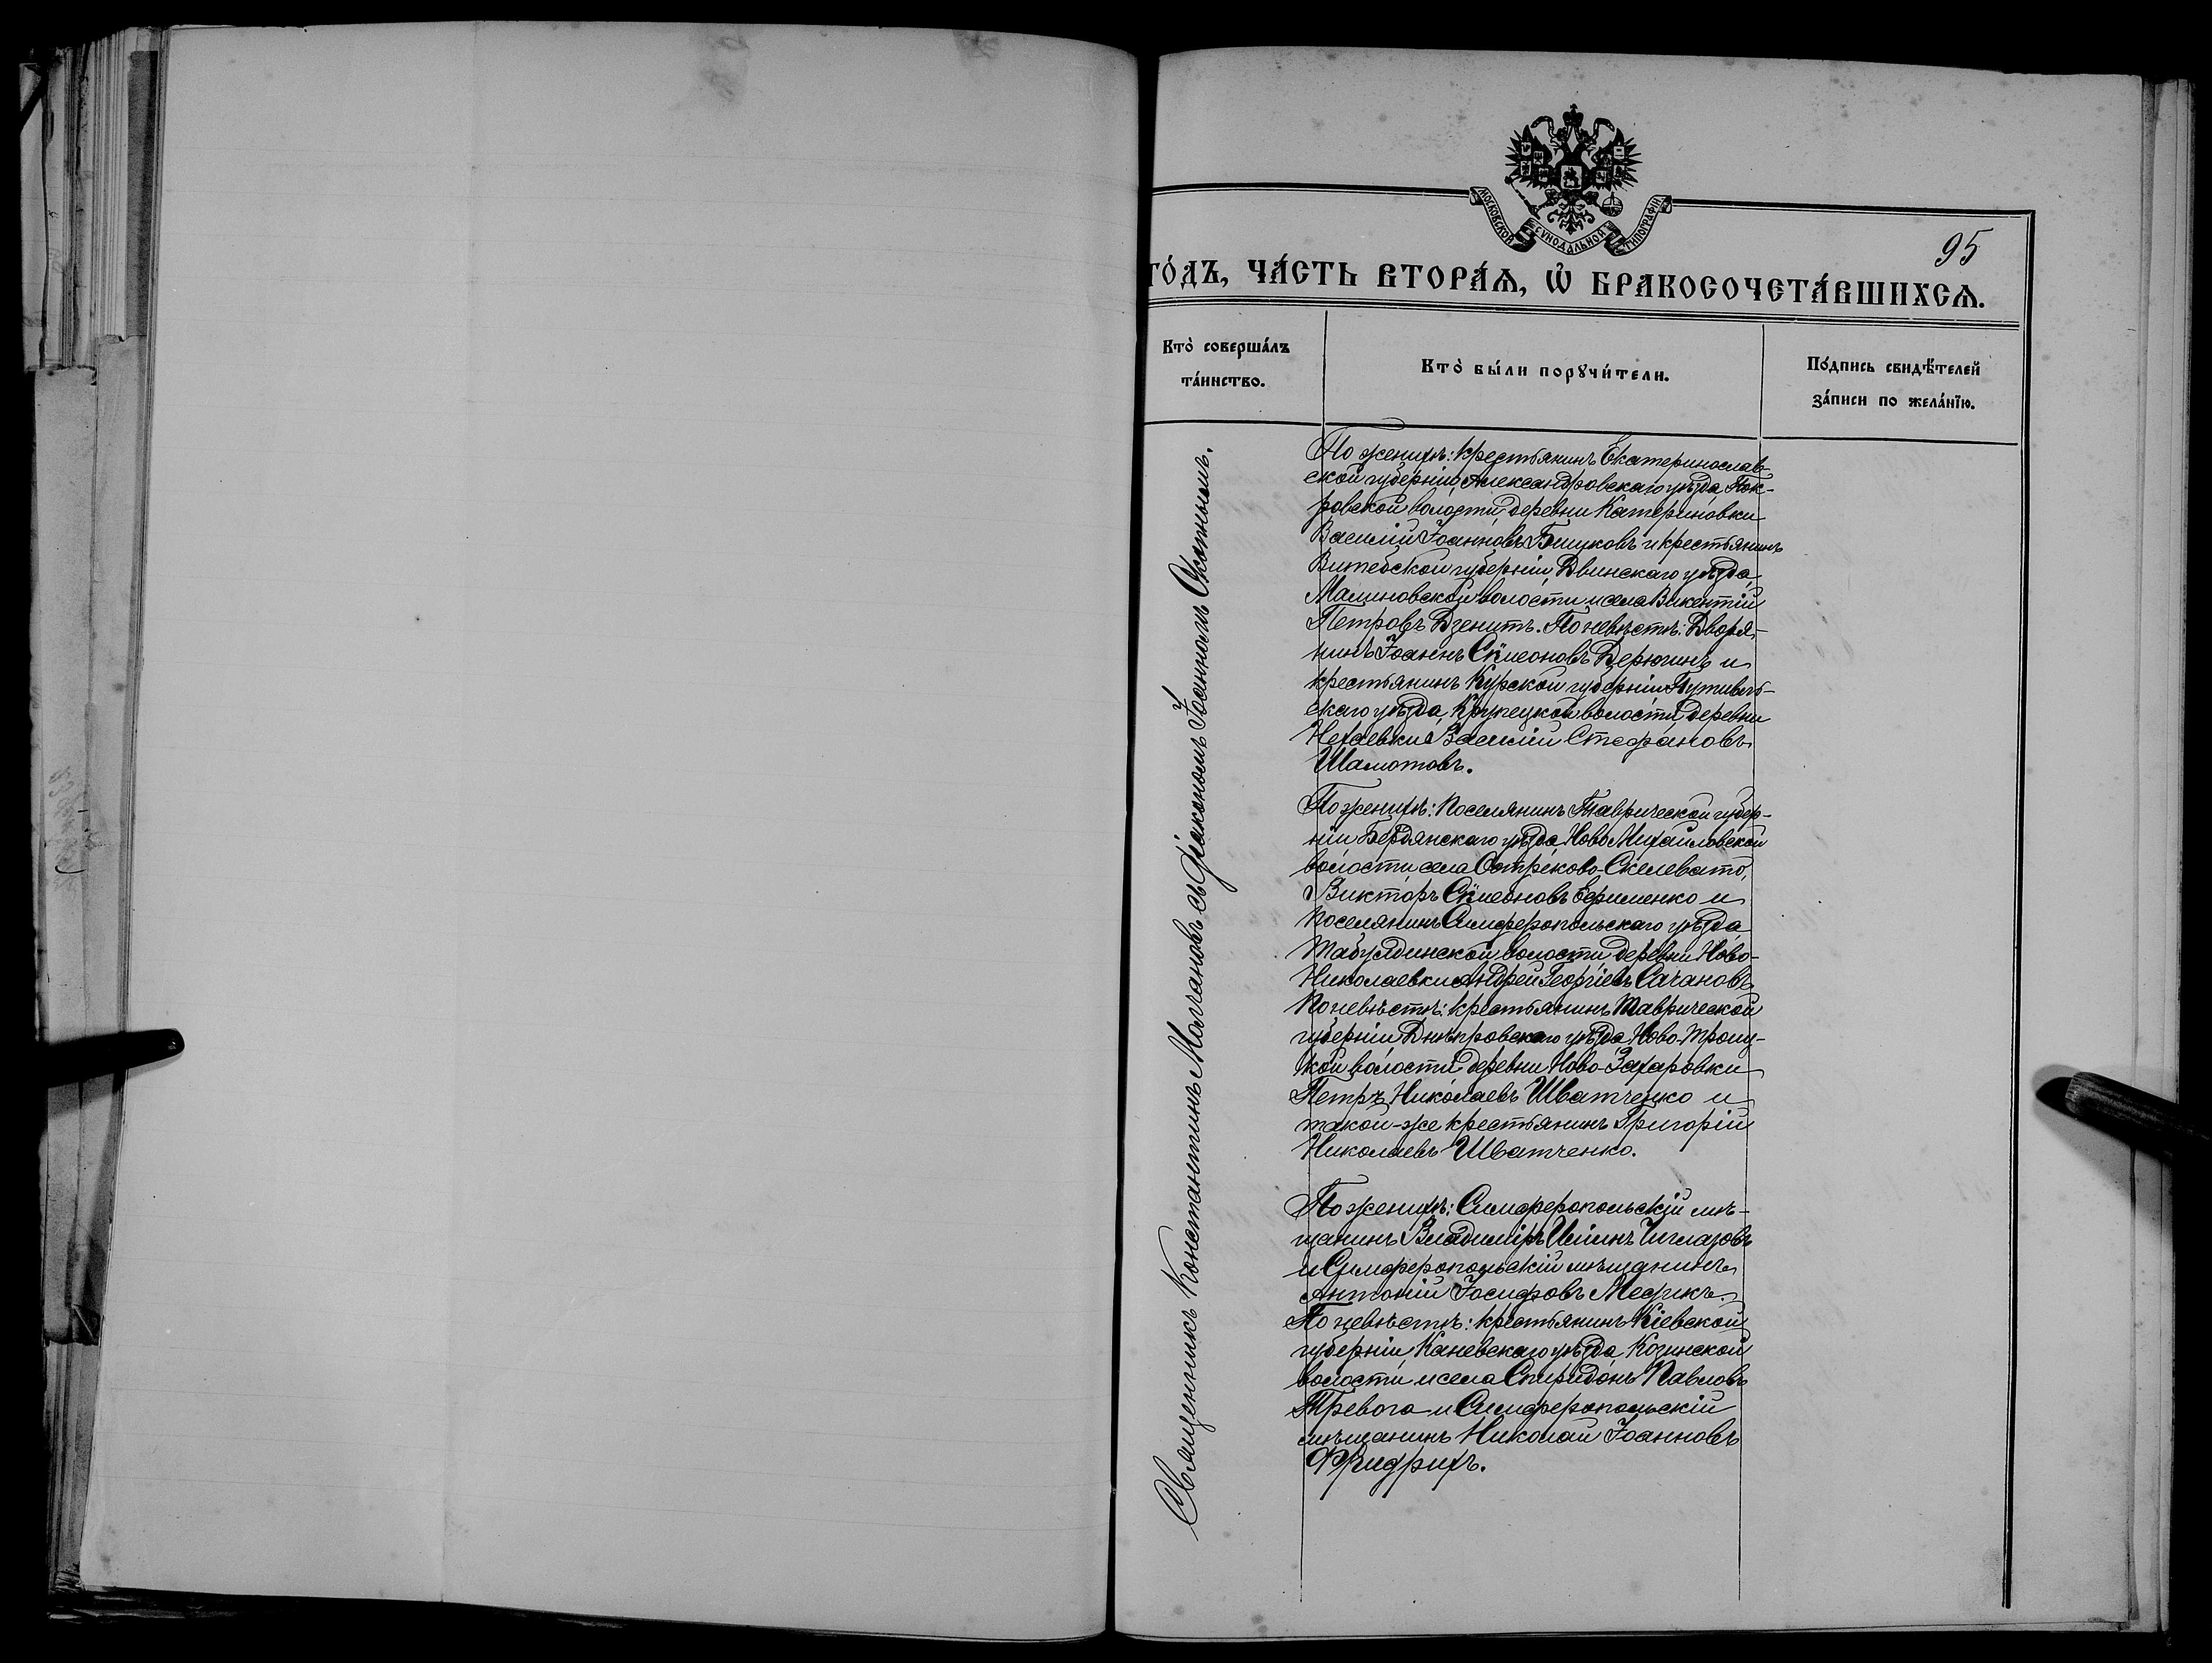 МОСКОВСКОЙ СѴНОДАЛЬНОЙ ТИПОГРАФІИ
95
ГО́ДЪ, ЧА́СТЬ ВТОРА́Ѧ, Ѽ БРАКОСОЧЕТА́ВШИХСѦ.
Кто̀ соверша́лъ
та́инство.
Кто̀ бы́ли порꙋчи́тели.
По́дпись свидѣ́телей
за́писи по жела́нїю.
Священникъ Константинъ Молчановъ съ діакономъ Іоанномъ
По женихѣ: крестьянинъ Екатеринослав-
ской губерніи, Александровскаго уѣзда, Пок-
ровской волости, деревни Катериновки
Василій Іоанновъ и крестьянинъ
Витебской губерніи, Двинскаго уѣзда,
Малиновской волости и села Викентій
Петровъ Дзенитъ. По невѣстѣ: Дворя-
нинъ Іоаннъ Сѵмеоновъ Дерюгинъ и
крестьянинъ Курской губерніи Путивль-
скаго уѣзда, Крупецкой волости, деревни
Нехаевки Василій Стефановъ
Шамотовъ.
По женихѣ: поселянинъ Таврической губер-
ніи Бердянскаго уѣзда, Ново Михайловской
волости, села Остриково-Скелевато,
Викторъ Сѵмеоновъ Ефименко и
поселянинъ Симферопольскаго уѣзда
Табулдинской волости, деревни Ново-
Николаевки Андрей Георгіевъ Сачановъ.
По невѣстѣ: крестьянинъ Таврической
губерніи Днѣпровскаго уѣзда, Ново-Троиц-
кой волости деревни Ново-Захаровки
Петръ Николаевъ Шватченко и
такой-же крестьянинъ Григорій
Николаевъ Шватченко.
По женихѣ: Симферопольскій мѣ-
щанинъ Владиміръ Ильинъ Чиглазовъ
и Симферопольскій мѣщанинъ
Антоній Іосифовъ Медрикъ.
По невѣстѣ: крестьянинъ Кіевской
губерніи, Каневскаго уѣзда, Козинской
волости, и села Спиридонъ Павловъ
Тревога и Симферопольскій
мѣщанинъ Николай Іоанновъ
Фридрихъ.